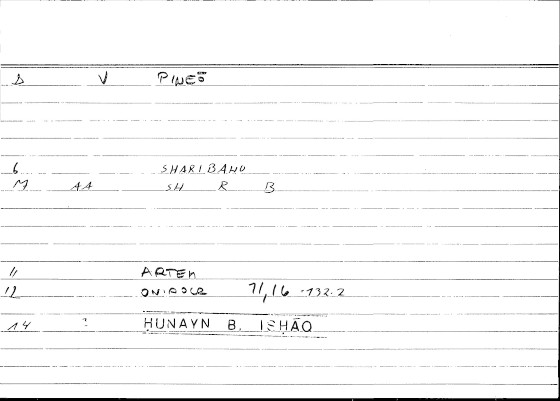 Δ V PINES
6 SHARIBANU
M AA SH R B
11 ARTEM
12 ONIROCR 71,16 -132.2
14 HUNAYN B. ISHĀQ